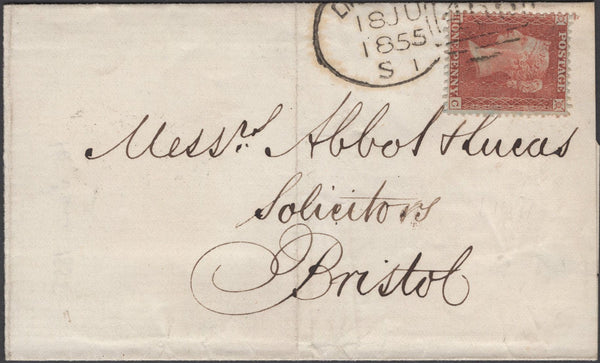 18 JU
1855
S 1
POSTAGE
ONE PENNY
C
Messrs Abbot & Lucas
Solicitors
Bristol